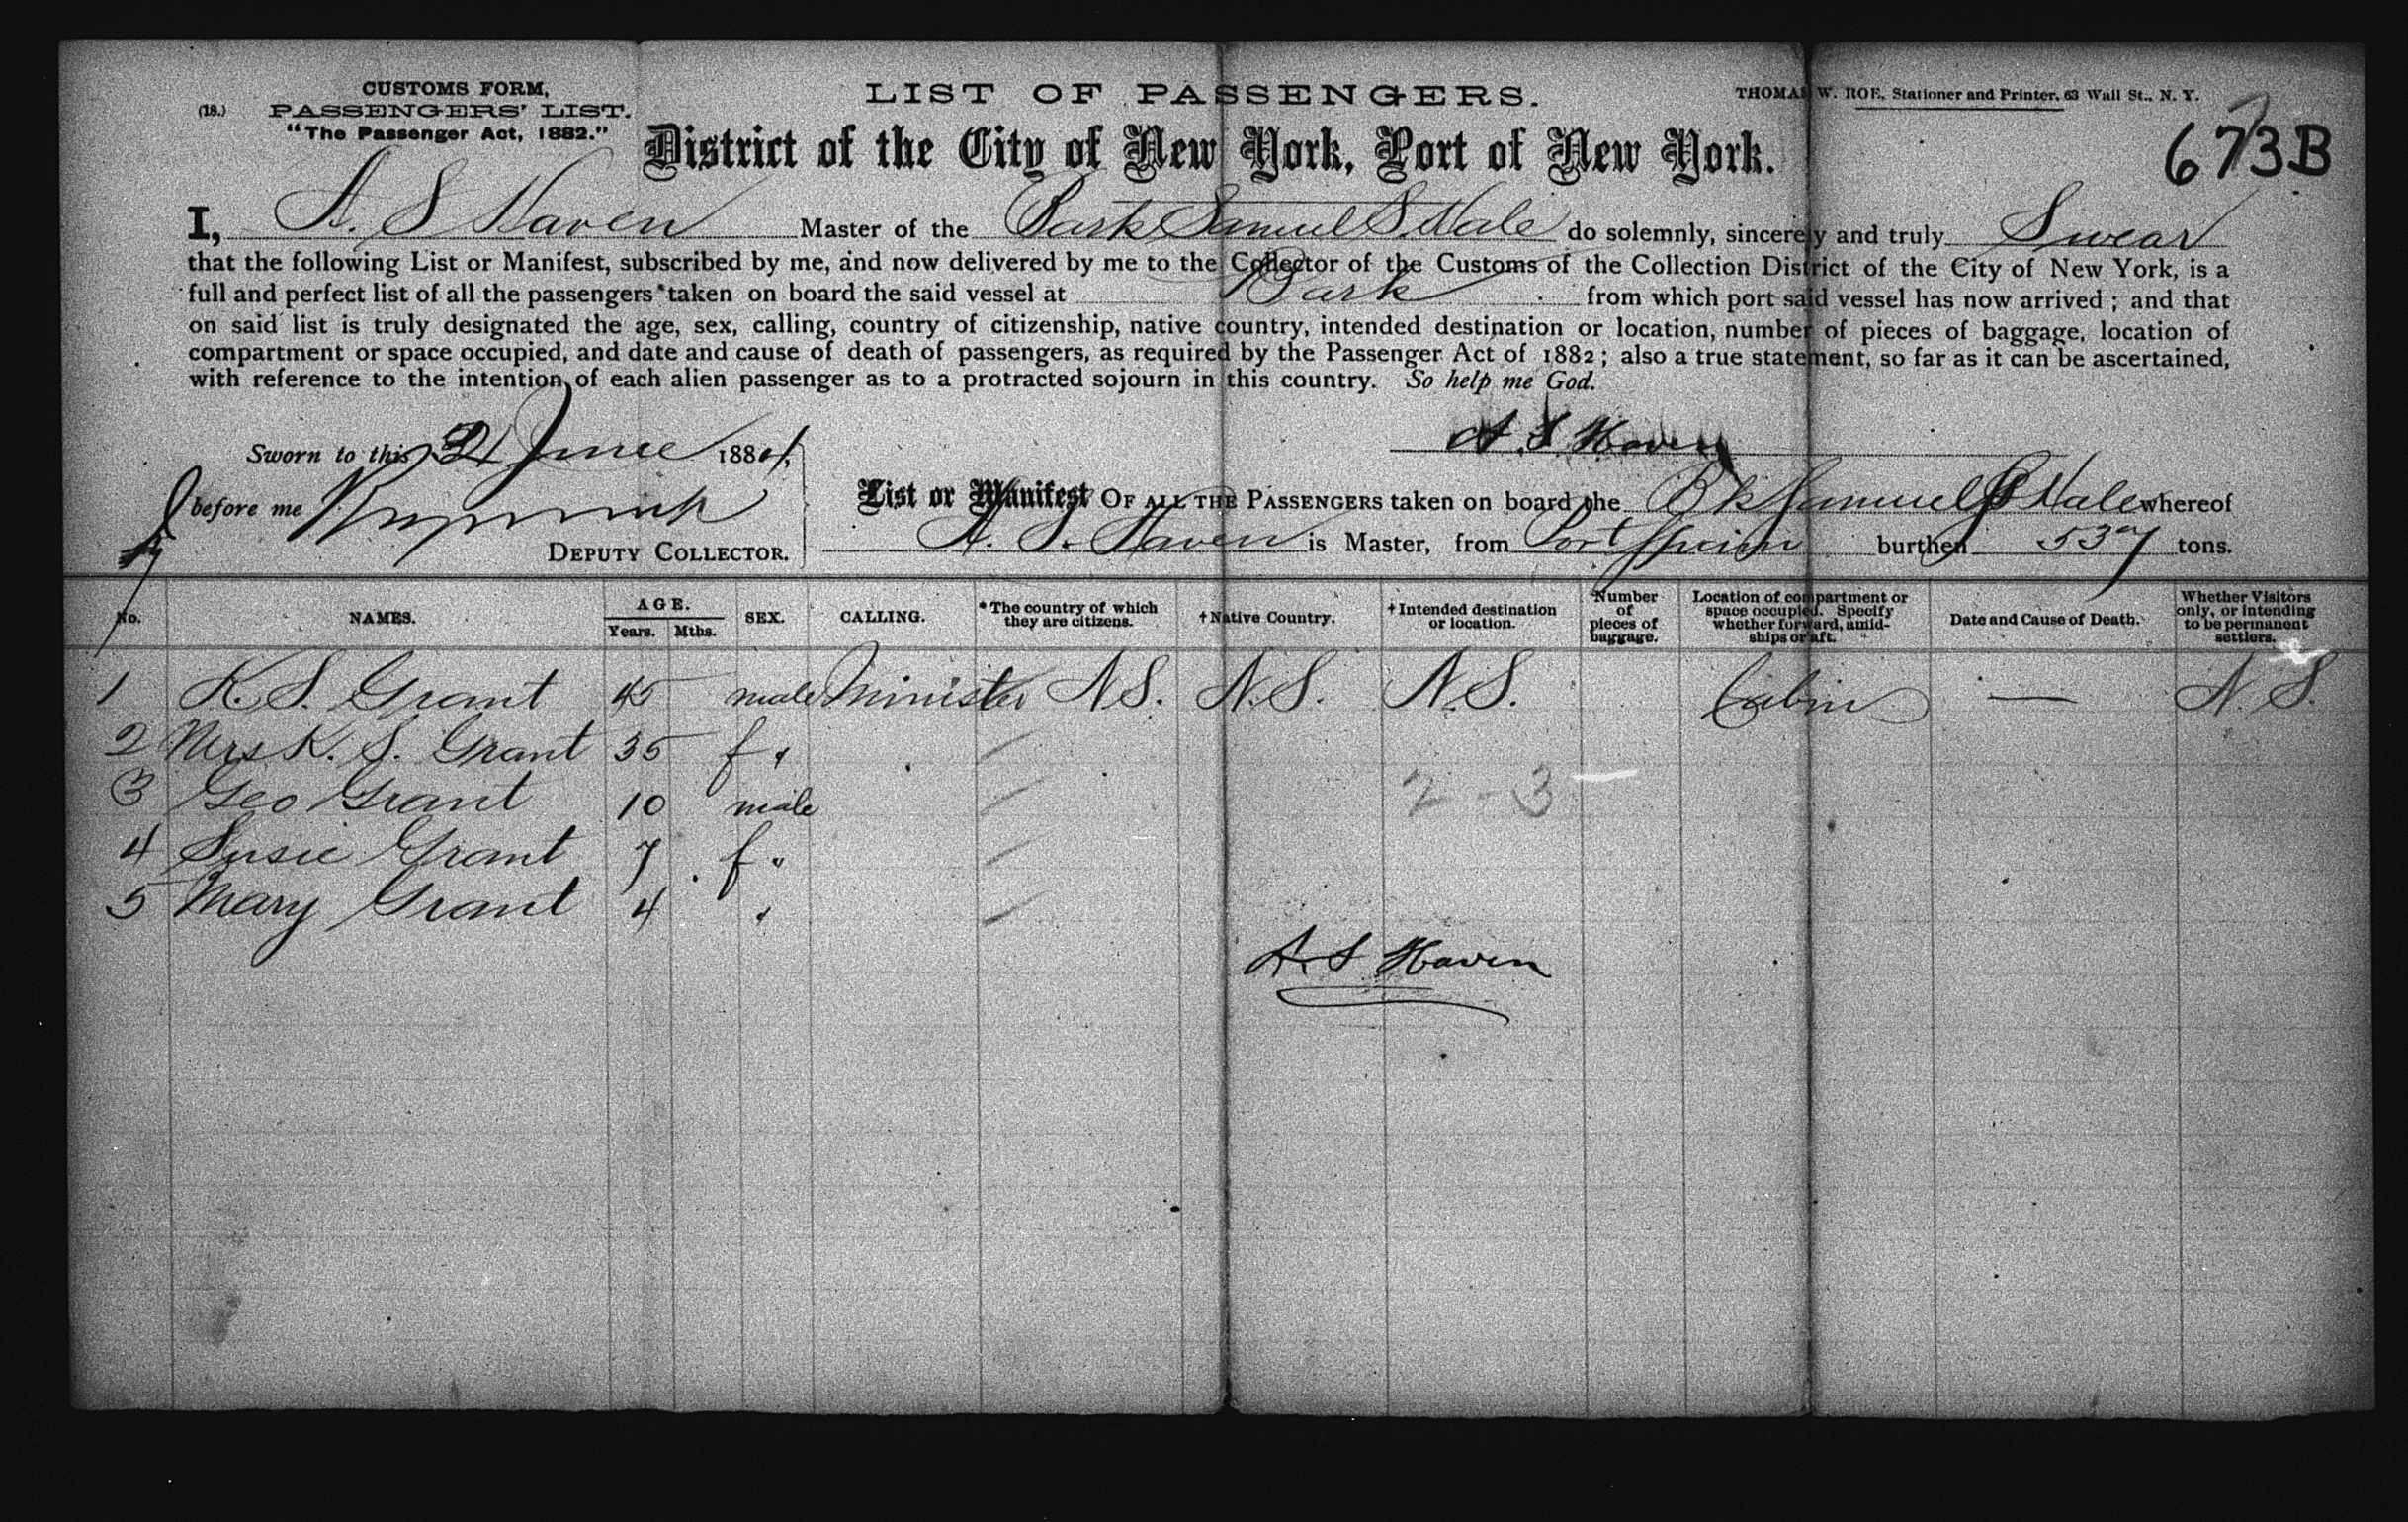 CUSTOMS FORM,
(18.) PASSENGERS' LIST.
"The Passenger Act, 1882."
LIST OF PASSENGERS.
THOMAS W. ROE, Stationer and Printer, 63 Wall St., N. Y.
673B
District of the City of New York, Port of New York.
I, A. S Haven Master of the Bark Samuel S. Hale do solemnly, sincerely and truly Swear
that the following List or Manifest, subscribed by me, and now delivered by me to the Collector of the Customs of the Collection District of the City of New York, is a
full and perfect list of all the passengers taken on board the said vessel at Bark from which port said vessel has now arrived; and that
on said list is truly designated the age, sex, calling, country of citizenship, native country, intended destination or location, number of pieces of baggage, location of
compartment or space occupied, and date and cause of death of passengers, as required by the Passenger Act of 1882; also a true statement, so far as it can be ascertained,
with reference to the intention of each alien passenger as to a protracted sojourn in this country. So help me God.
A. S Haven
Sworn to this 21 June 188
before me
DEPUTY COLLECTOR.
List or Manifest OF ALL THE PASSENGERS taken on board the Bk Samuel S Hale whereof
A. S. Haven is Master, from Port Spain burthen 537 tons.
No. NAMES. AGE. Years. Mths. SEX. CALLING. *The country of which they are citizens. †Native Country. †Intended destination or location. Number of pieces of baggage. Location of compartment or space occupied. Specify whether forward, amidships or aft. Date and Cause of Death. Whether Visitors only, or intending to be permanent settlers.
1 K. S. Grant 45 male Minister N S. N. S. N. S. Cabin — N. S.
2 Mrs K. S. Grant 35 f "
3 Geo Grant 10 male
2 - 3
4 Susie Grant 7 f "
5 Mary Grant 4 "
A. S Haven